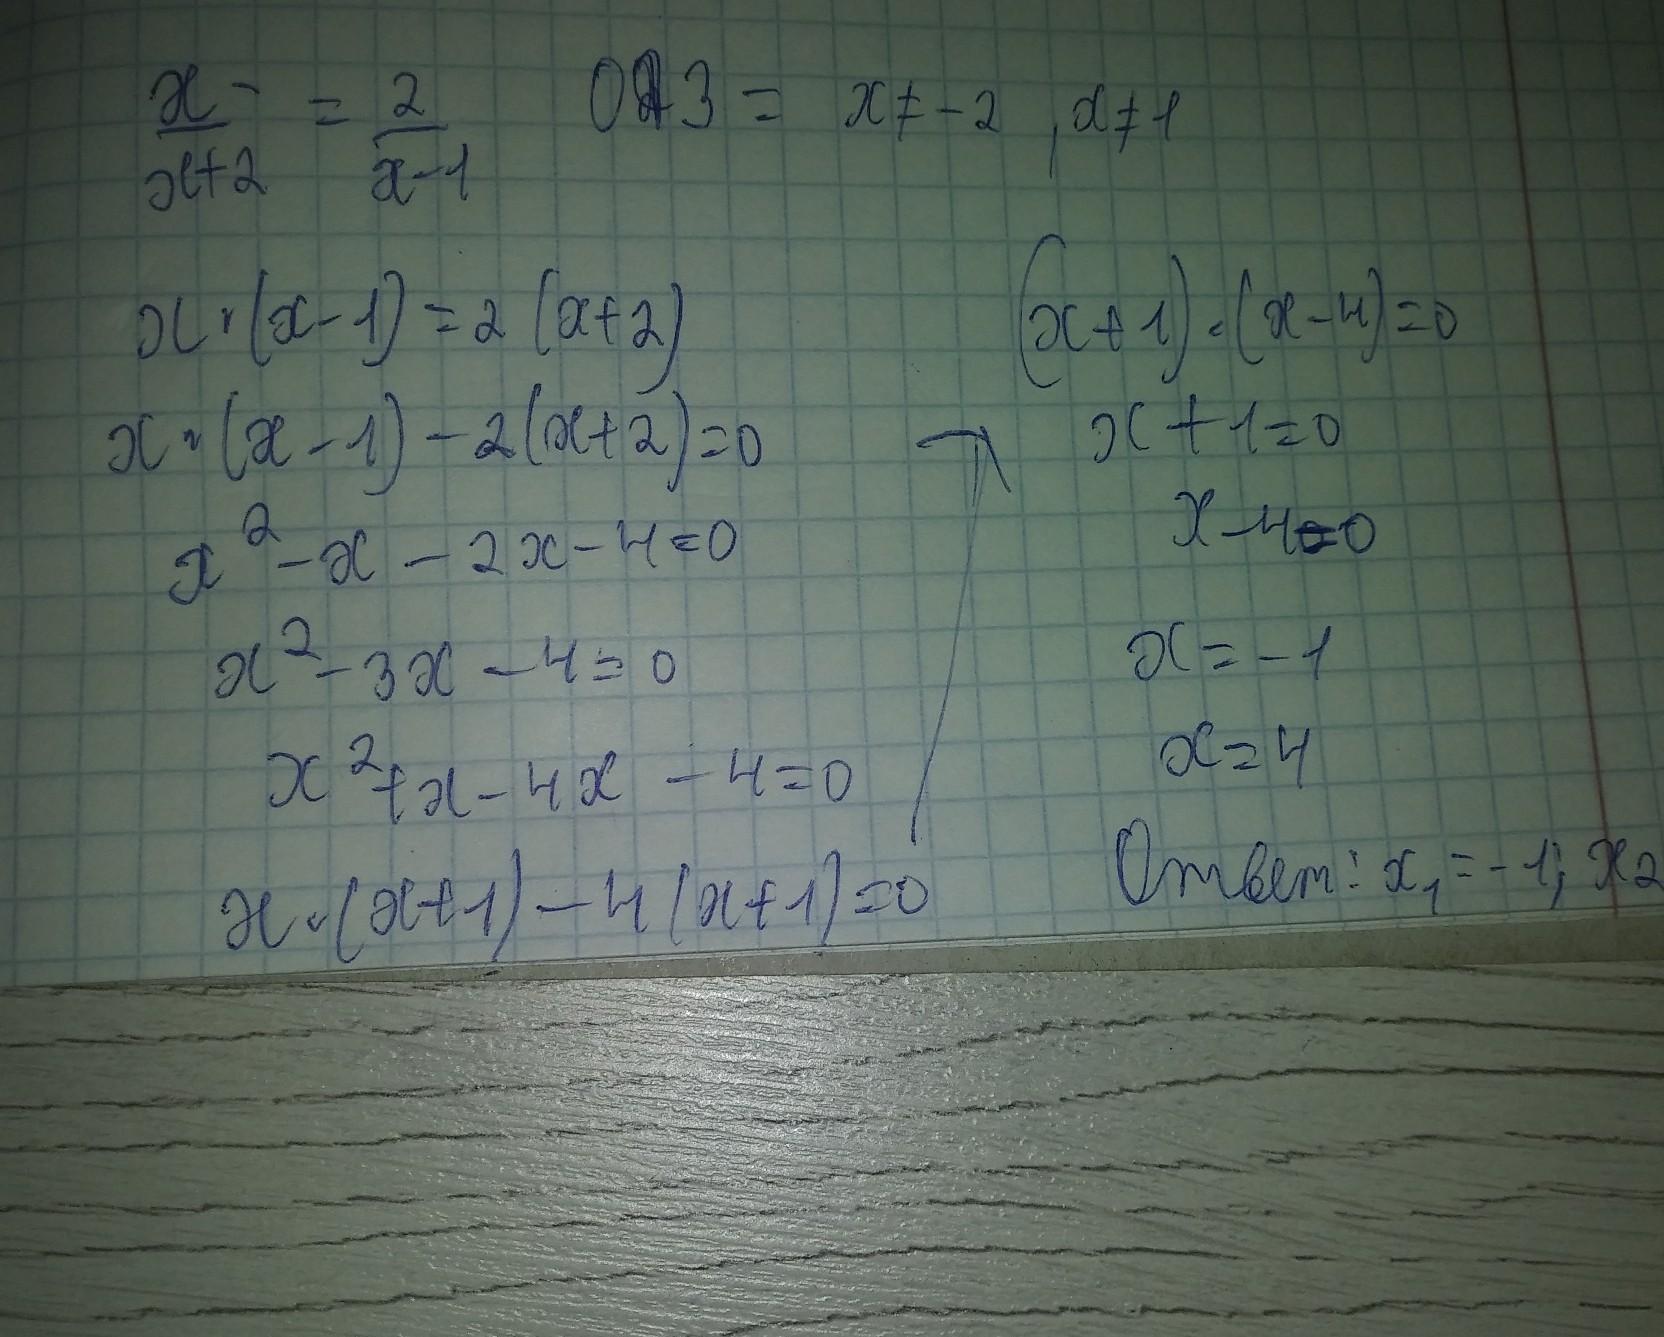 x/(x+2) = 2/(x-1) ОДЗ = x ≠ -2, x ≠ 1
x·(x-1) = 2(x+2)
x·(x-1) - 2(x+2) = 0
x² - x - 2x - 4 = 0
x² - 3x - 4 = 0
x² + x - 4x - 4 = 0
x·(x+1) - 4(x+1) = 0
(x+1)·(x-4) = 0
x + 1 = 0
x - 4 = 0
x = -1
x = 4
Ответ: x₁ = -1; x₂